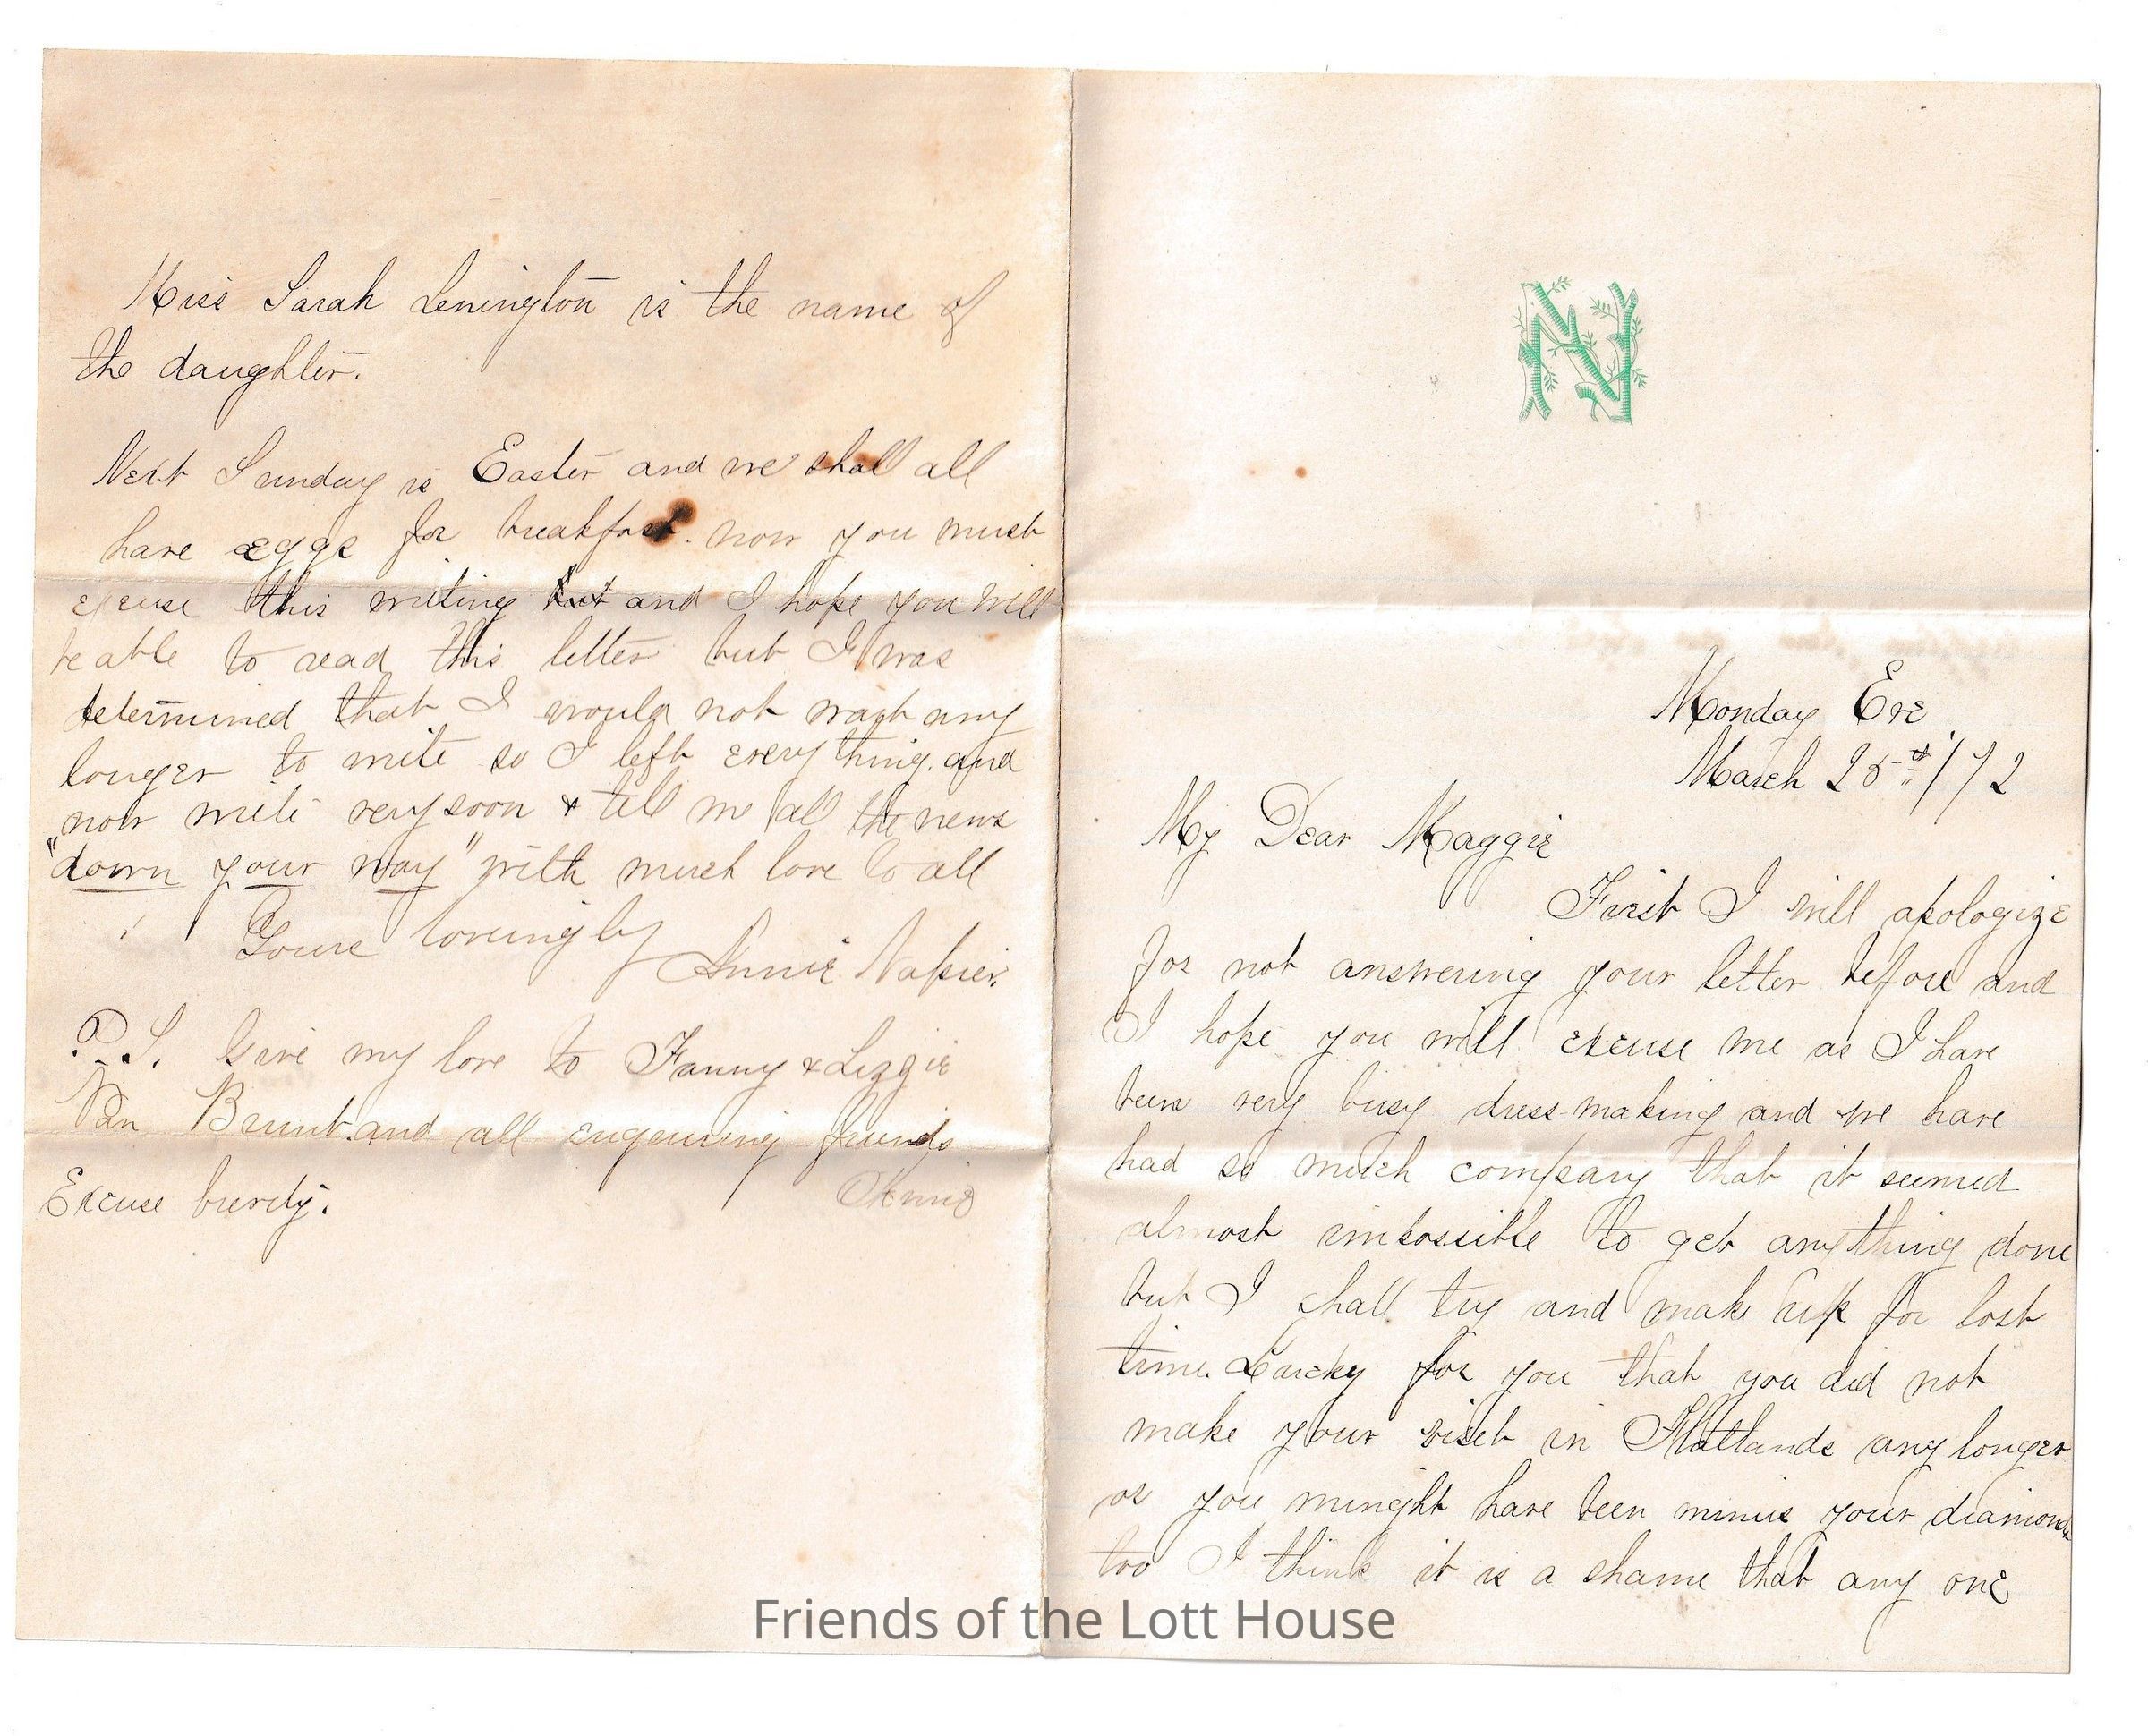 N
Monday Eve
March 25th/72
My Dear Maggie
First I will apologize
for not answering your letter before and
I hope you will excuse me as I have
been very busy dress-making and we have
had so much company that it seemed
almost impossible to get anything done
but I shall try and make up for lost
time. Lucky for you that you did not
make your visit in Flatlands any longer
or you minght have been minus your diamonds
too I think it is a shame that any one
Miss Sarah Lenington is the name of
the daughter.
Next Sunday is Easter and we shall all
have eggs for breakfast. now you must
excuse this writing but and I hope you will
be able to read this letter but I was
determined that I would not wait any
longer to write so I left everything. and
now write very soon & tell me all the news
"down your way" with much love to all
Yours lovingly
Annie Napier.
P.S. Give my love to Fanny & Lizzie
Van Brunt. and all enquiring friends
Excuse brevity. Annie
Friends of the Lott House